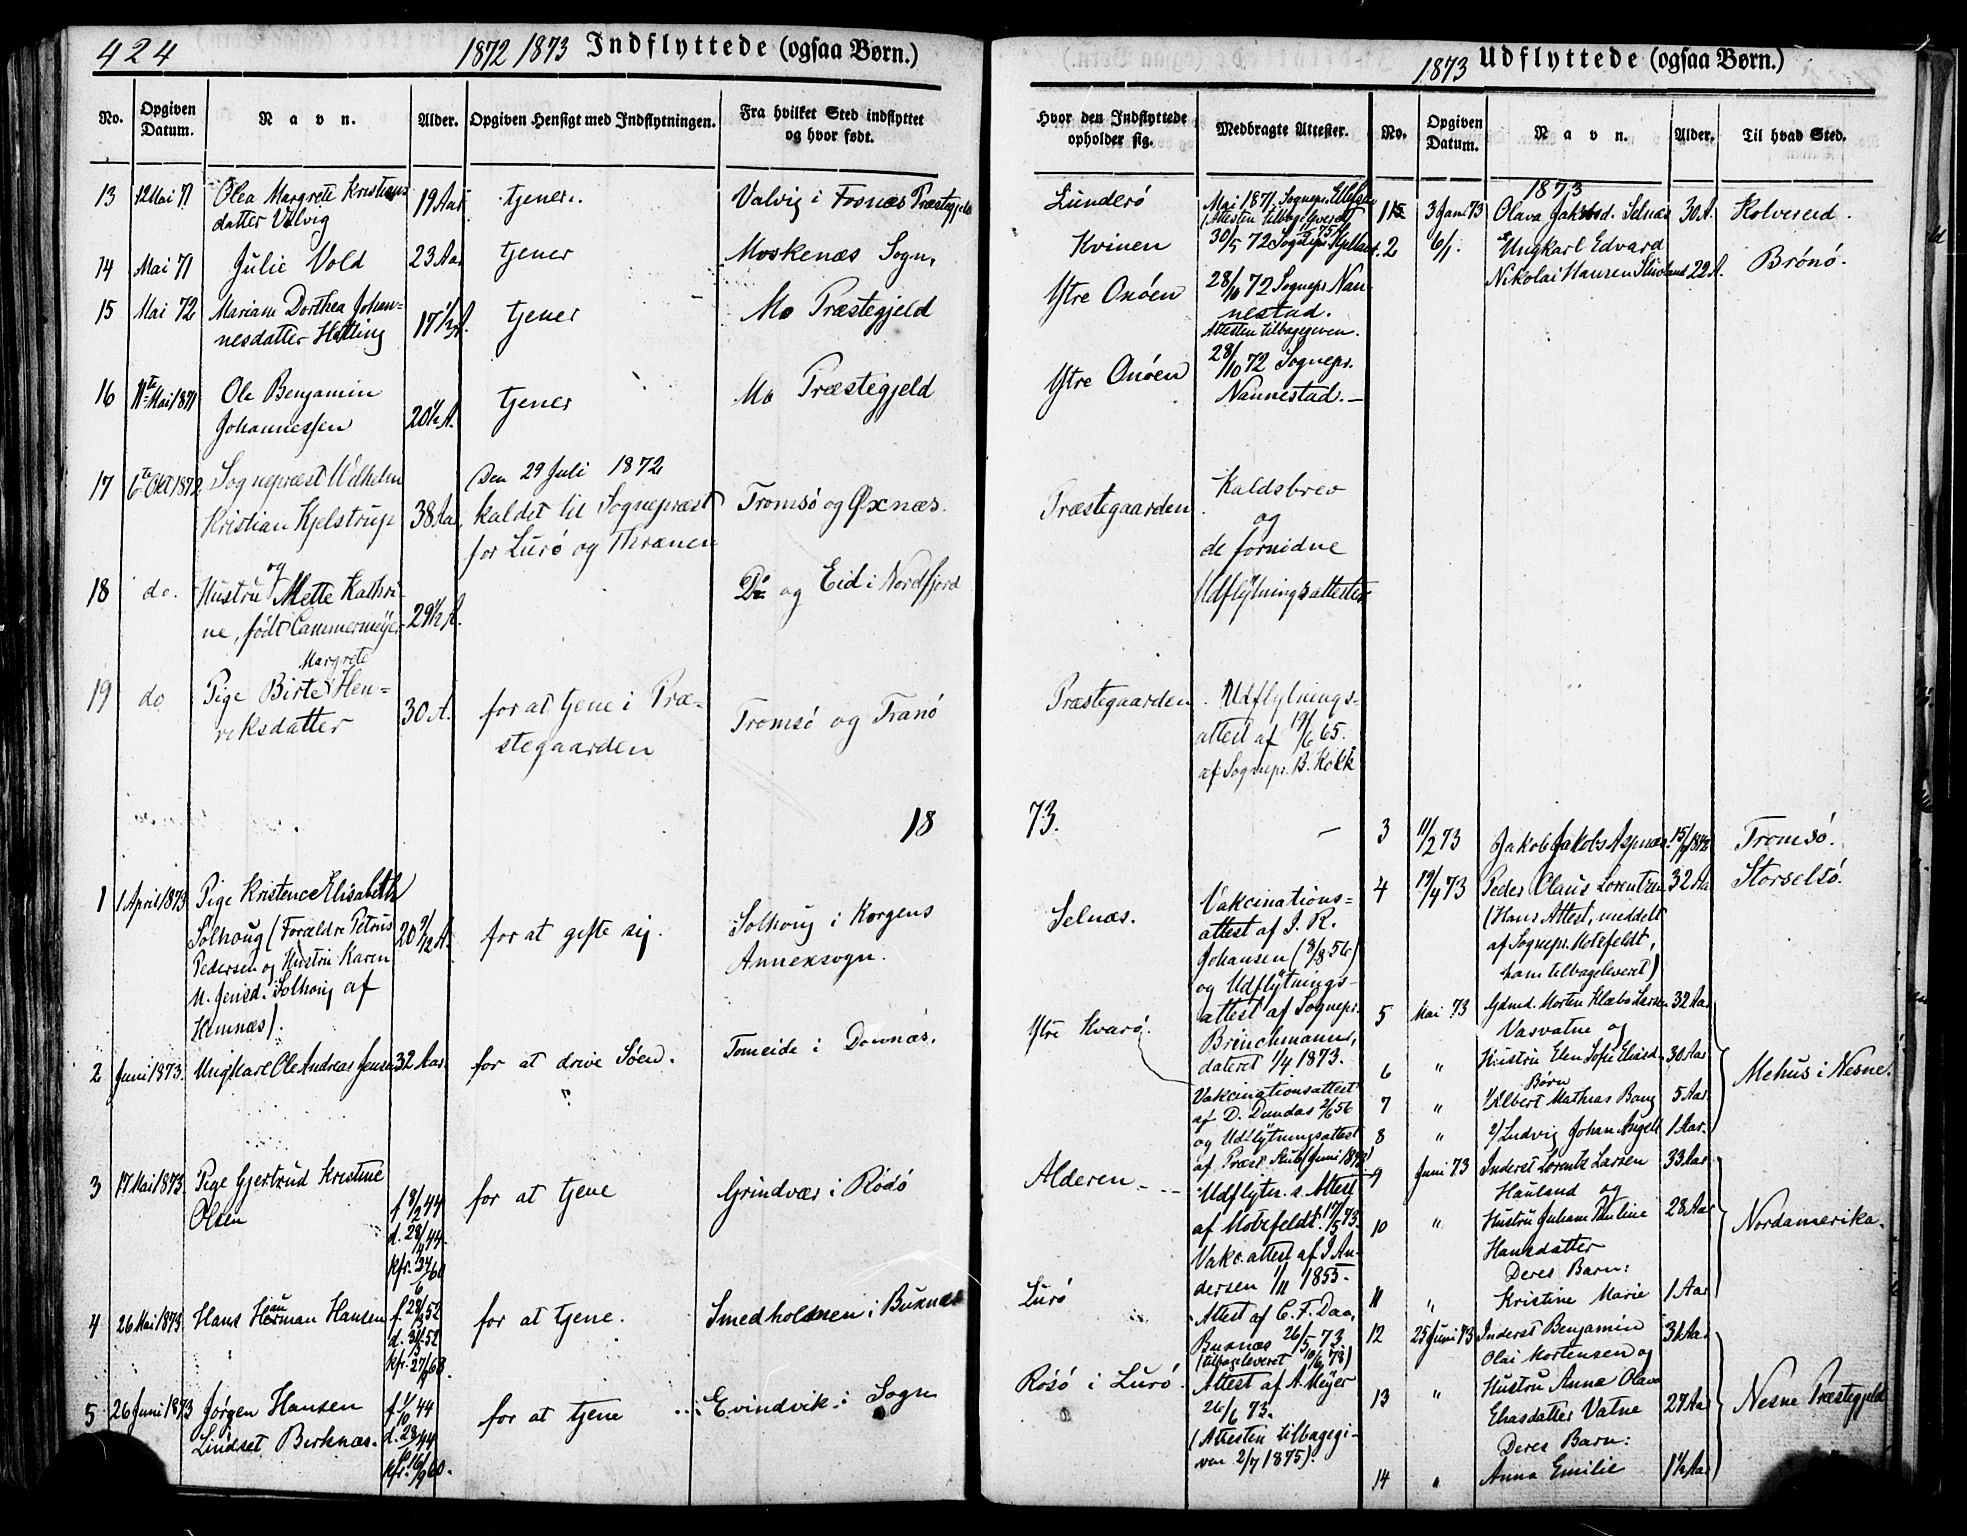 424
1872 1873 Indflyttede (ogsaa Børn.)
No. Opgiven Datum. Navn. Alder. Opgiven Hensigt med Indflytningen. Fra hvilket Sted indflyttet og hvor født.
13 12 Mai 71 Olea Margrete Kristians- 19 Aar tjener. Valvig i Fosnæs Præstegjeld
datter Valvig
14 Mai 71 Julie Vold 23 Aar tjener Moskenæs Sogn.
15 Mai 72 Mariane Dorthea Johan- 17 1/2 A. tjener Mo Præstegjeld
nesdatter Hatting
16 11te Mai 1871 Ole Benjamin 20 1/2 A. tjener Mo Præstegjeld
Johannessen
17 6te Okt 1872 Sognepræst Wilhelm Den 29 Juli 1872
Kristian Kjelstrup 38 Aar kaldet til Sognepræst Tromsø og Øxnæs.
for Lurø og Thrænen
og
18 do. Hustru Mette Kathri- Do og Eid i Nordfjord
ne, født Cammermeyer 29 1/2 A.
Margrete
19 do Pige Birte Hen- 30 A. for at tjene i Præ- Tromsø og Tranø
riksdatter stegaarden
18
1 1 April 1873 Pige Kristence Elisabeth
Solhoug (Forældre Petrus 20 9/12 A. for at gifte sig. Solhoug i Korgens
Pedersen og Hustru Karen Annexsogn.
M. Jensd. Solhoug af
Hemnæs).
2 Juni 1873. Ungkarl Ole Andreas Jensen 32 Aar. for at drive Søen. Tomeide i Dønnæs.
3 17 Mai 1873 Pige Gjertrud Kristine for at tjene Grindvær i Rødø
Olsen f 8/2 44
d. 28/4 44.
kfr. 24/6 60
4 26 Mai 1873 Hans Herman Hansen f 28/3 52 for at tjene. Smedholmen i Buxnæs
d. 31/5 52
kfr. 27/9 68.
5 26 Juni 1873 Jørgen Hansen f 1/10 44 for at tjene Evindvik i Sogn
Lindset Birknæs. d. 28/ 44
kfr. 16/9 60.
1873 Udflyttede (ogsaa Børn.)
Hvor den Indflyttede opholder sig. Medbragte Attester. No. Opgiven Datum. Navn. Alder. Til hvad Sted.
1873
Lunderø Mai 1871 Sognepr. Ellefsen 1 3 Jan 73 Olava Jakobsd. Selnæs 30 A. Kolvereid.
(Attesten tilbageleveret
Kvinen 30/5 72 Sognepr. 2 6/1. Ungkarl Edvard Brønø.
Nikolai Hansen 22 A.
Ytre Onøen 28/10 72 Sognepr. Nan-
nestad.
Attesten tilbagegiven.
Ytre Onøen 28/10 72 Sognepr.
Nannestad.
Præstegaarden Kaldsbrev
og
de fornødne
Udflytningsattester
Præstegaarden Udflytnings-
attest af 19/6 65.
af Sognepr. B. Kokk
73.
3 11/2 73 Jakob Jakobs Aspnæs 15/ 1842 Tromsø.
4 19/4 73 Peder Claus Lorentzen 32 Aar Storselsø.
(Hans Attest, meddelt
af Sognepr. Motzfeldt,
ham tilbageleveret)
Selnæs. Vakcinations-
attest af I. R.
Johansen (8/8 56)
og Udflytnings-
attest af Sognepr.
Brinchmann,
dateret 1/4 1873.
5 Mai 73 Gdmd. Morten Klæbo Larsen 32 Aar
Vasvatne og
6 " Hustru Elen Sofie Eliasd. 30 Aar
Børn Mehus i Nesne.
7 " 1/ Albert Mathias Bang 5 Aar
8 " 2/ Ludvig Johan Angell 1 Aar.
Ytre Kvarø. Vakcinationsattest
af D. Dundas 2/6 56
og Udflytningsattest
af Præst Stub (Juni 1872)
9 Juni 73 Inderst Lorentz Larsen 33 Aar
Hauland og
10 " Hustru Juhane Pauline 28 Aar Nordamerika.
Hansdatter
Deres Barn:
11 " Kristine Marie 1 Aar
Alderen Udflytn.s. Attest
af Motzfeldt. 17/5 73.
Vakc. attest af I An-
dersen 1/11 1855.
Lurø Attest af C. F. Daa,
Buxnæs 26/5 73
(tilbageleveret 10/6 78)
12 25 Juni 73 Inderst Benjamin 31 Aar
Olai Mortensen og
13 " Hustru Anne Olava
Eliasdatter Vatne 27 Aar Nesne Præstegjeld
Deres Barn:
14 " Anna Emilie 1 1/2 Aar
Røsø i Lurø. Attest af A. Meyer
26/6 73.
(Attesten tilbagegi-
ven 2/7 1875).